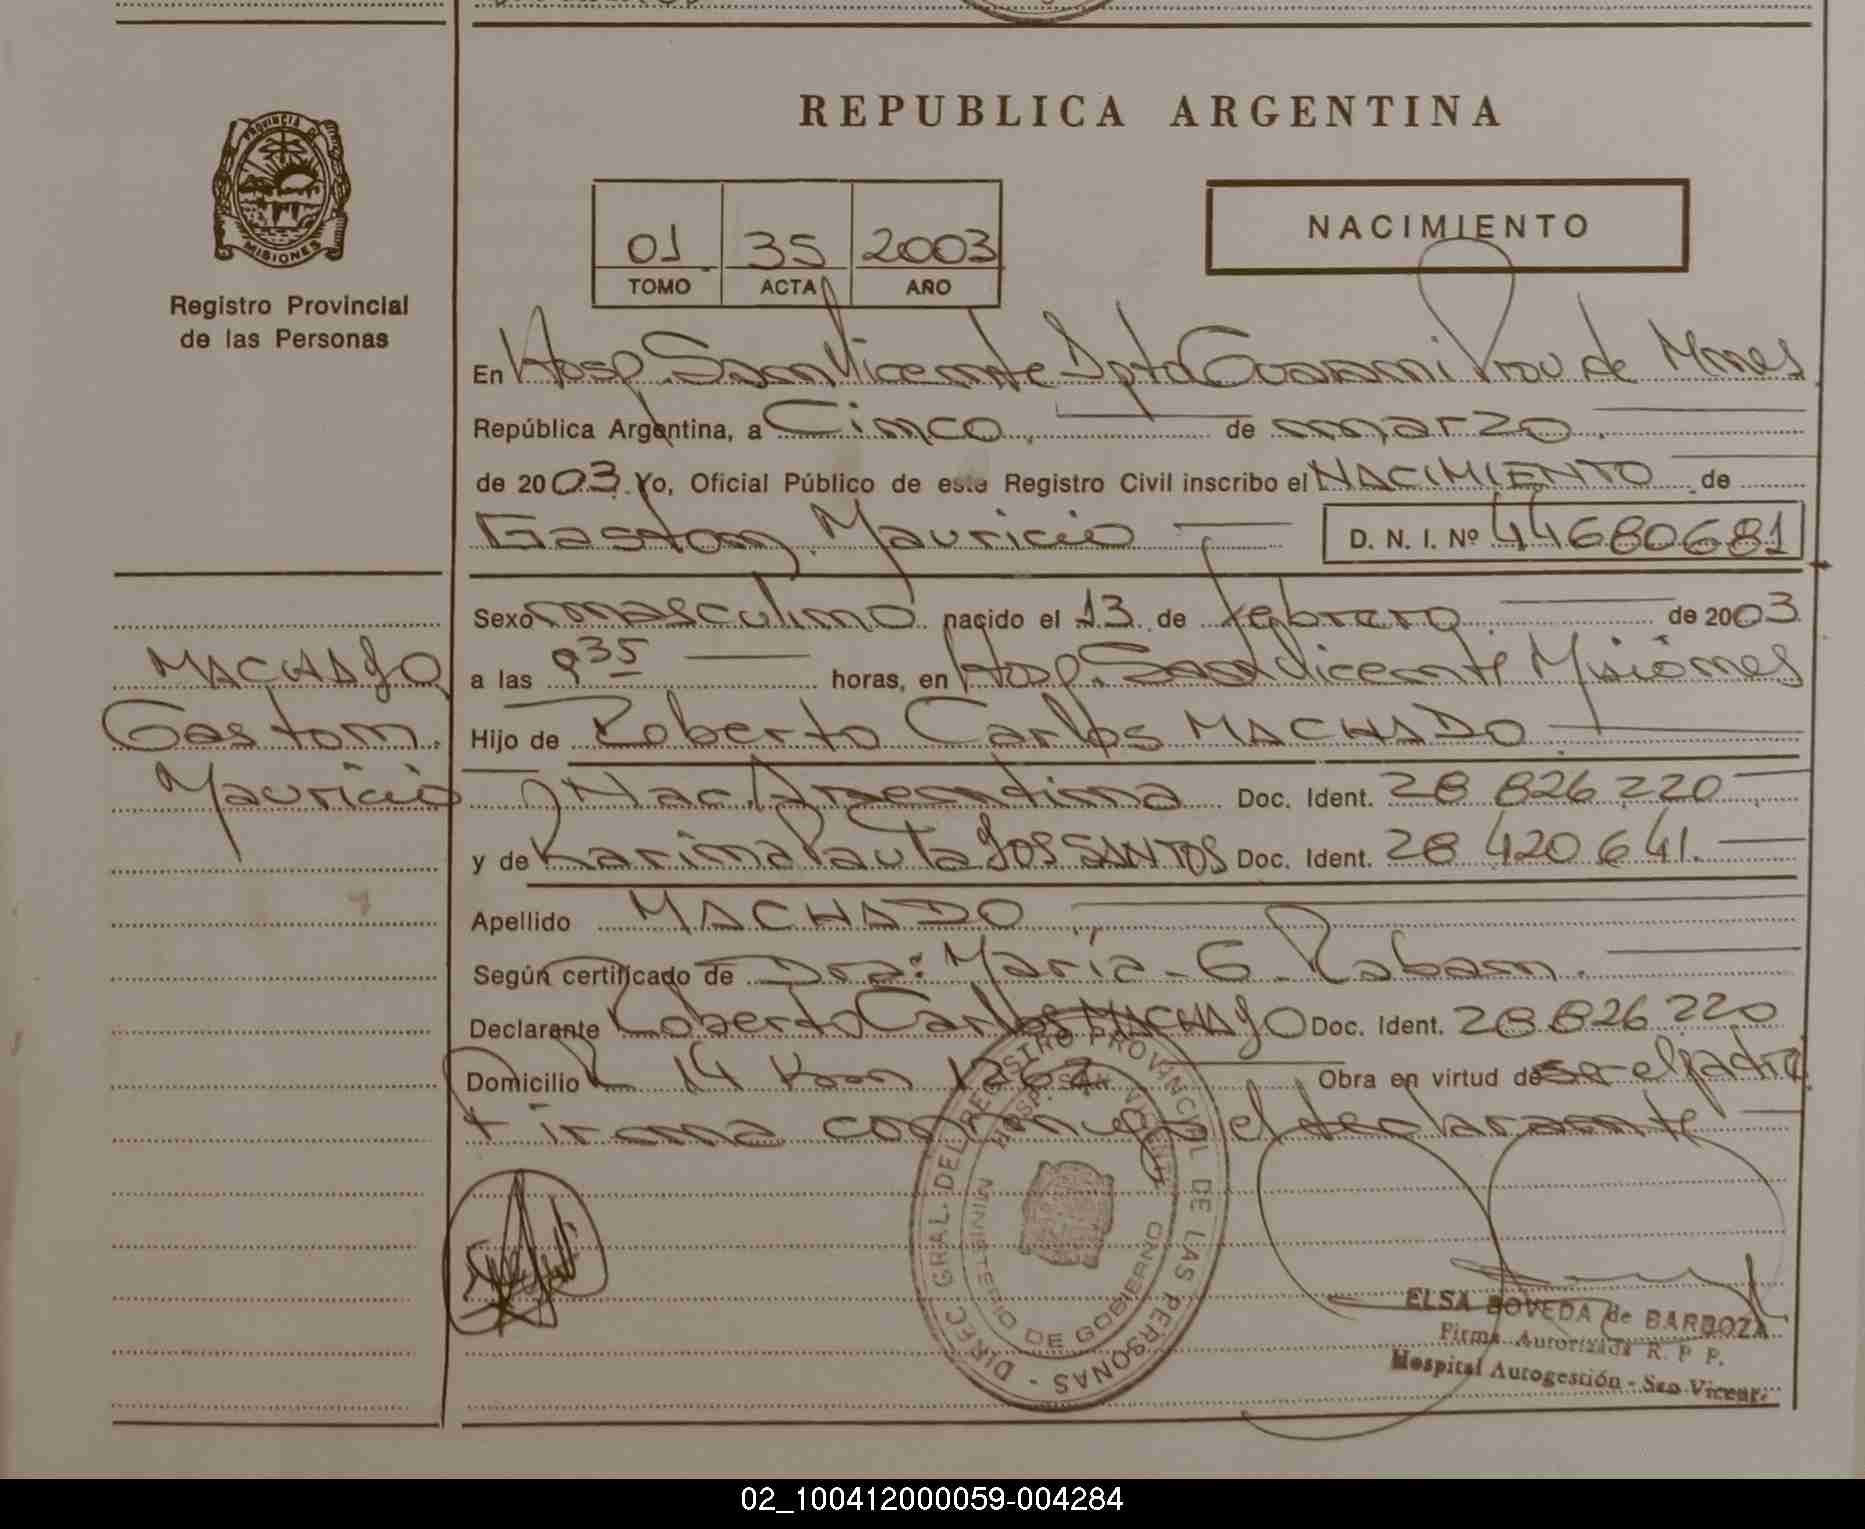 REPUBLICA ARGENTINA
PROVINCIA DE
MISIONES
Registro Provincial
de las Personas
01 35 2003
TOMO ACTA AÑO
NACIMIENTO
En Hosp. San Vicente Dpto Guarani Prov de Mnes
República Argentina, a Cinco de marzo
de 2003. Yo, Oficial Público de este Registro Civil inscribo el NACIMIENTO de
Gaston Mauricio D. N. I. Nº 44680681
Sexo masculino nacido el 13 de febrero de 2003
a las 9 35 horas, en Hosp. San Vicente Misiones
Hijo de Roberto Carlos MACHADO
Nac. Argentina Doc. Ident. 28 826 220
y de Karina Paula DOS SANTOS Doc. Ident. 28 420 641.
Apellido MACHADO
Según certificado de Dra: Maria G. Raban.
Declarante Roberto Carlos MACHADO Doc. Ident. 28 826 220
Domicilio R 14 Km 1262 Obra en virtud de ser el padre
Firma conmigo el declarante
MACHADO
Gaston
Mauricio
DIREC. GRAL. DEL REGISTRO PROVINCIAL DE LAS PERSONAS -
MINISTERIO DE GOBIERNO
HOSP. SAN VICENTE
ELSA BOVEDA de BARBOZA
Firma Autorizada R. P. P.
Hospital Autogestión - San Vicente
02_100412000059-004284